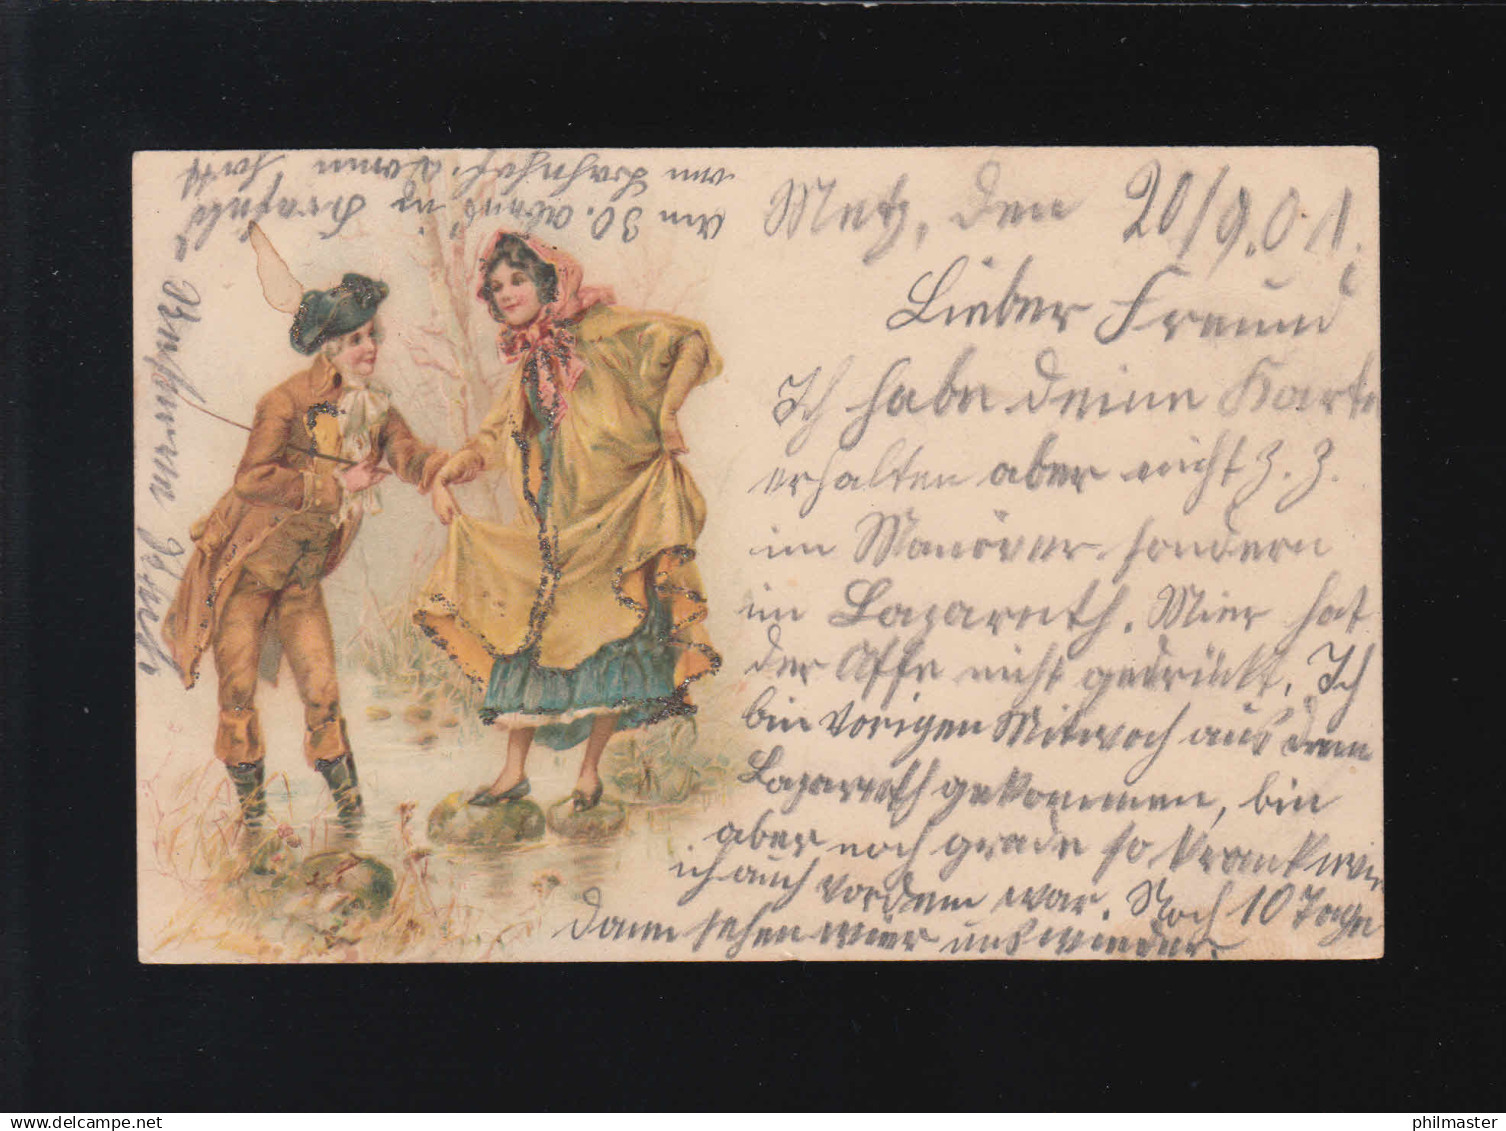 Metz, den 20/9.01.
Lieber Freund
Ich habe deine Karte
erhalten aber nicht z. Z.
im Manöver sondern
im Lazareth. Mier hat
der Affe nicht gedrückt. Ich
bin vorigen Mittwoch aus dem
Lazareth gekommen, bin
aber noch grade so krank wie
ich auch vordem war. Noch 10 Tage
dann sehen wier uns wieder.
Am 30. Abend
am Bahnhof. Wenn
philmaster